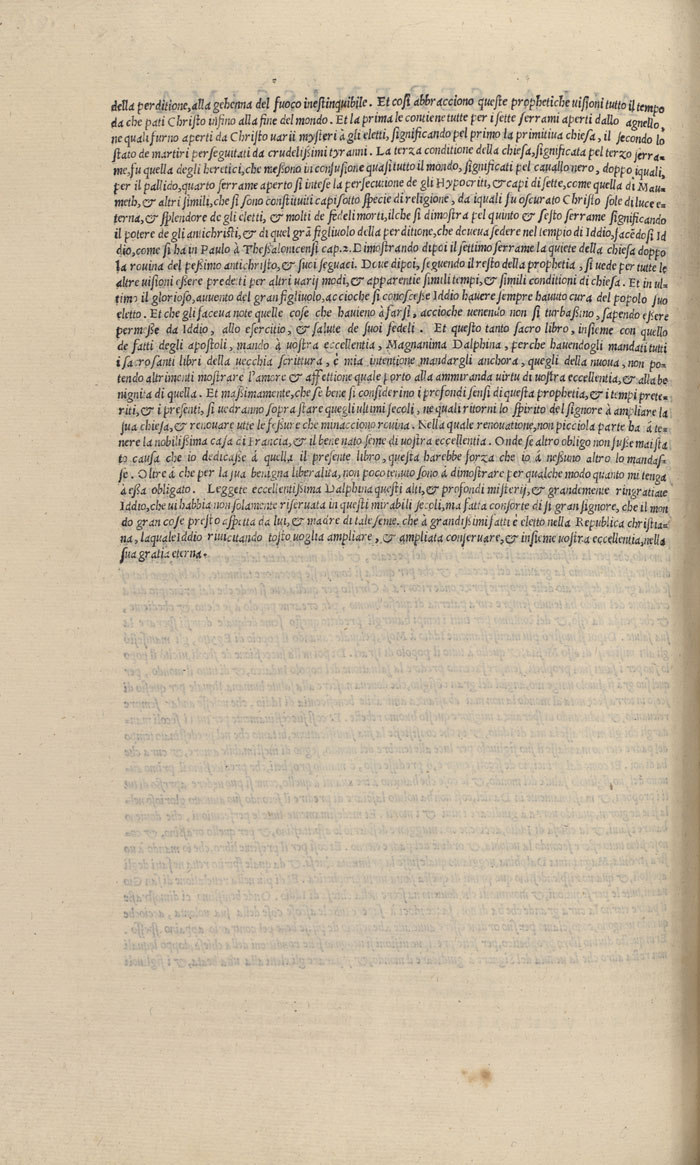 della perditione, alla gehenna del fuoco inestinquibile. Et cosi abbracciono queste prophetiche uisioni tutto il tempo
da che pati Christo infino alla fine del mondo. Et la prima le contiene tutte per i sette serrami aperti dallo agnello,
ne quali furno aperti da Christo uarii mysteri à gli eletti, significando pel primo la primitiua chiesa, il secondo lo
stato de martiri perseguitati da crudelißimi tyranni. La terza conditione della chiesa, significata pel terzo serra=
me, fu quella degli heretici, che meßono in confusione quasi tutto il mondo, significati pel cauallo nero, doppo iquali,
per il pallido, quarto serrame aperto si intese la persecutione de gli Hypocriti, & capi di sette, come quella di Mau=
meth, & altri simili, che si sono constituiti capi sotto specie di religione, da iquali fu oscurato Christo sole di luce e=
terna, & splendore de gli eletti, & molti de fedeli morti, ilche si dimostra pel quinto & sesto serrame significando
il potere de gli antichristi, & di quel grā figliuolo della perditione, che doueua sedere nel tempio di Iddio, facēdosi Id
dio, come si ha in Paulo à Theßalonicensi cap. 2. Dimostrando dipoi il settimo serrame la quiete della chiesa doppo
la rouina del peßimo antichristo, & suoi seguaci. Doue dipoi, seguendo il resto della prophetia, si uede per tutte le
altre uisioni eßere predetti per altri uarij modi, & apparentie simili tempi, & simili conditioni di chiesa. Et in ul=
timo il glorioso, auuento del gran figliuolo, accioche si conosceße Iddio hauere sempre hauuto cura del popolo suo
eletto. Et che gli faceua note quelle cose che hauieno à farsi, accioche uenendo non si turbaßino, sapendo eßere
permeße da Iddio, allo esercitio, & salute de suoi fedeli. Et questo tanto sacro libro, insieme con quello
de fatti degli apostoli, mando à uostra eccellentia, Magnanima Dalphina, perche hauendogli mandati tutti
i sacrosanti libri della uecchia scrittura, è mia intentione mandargli anchora, quegli della nuoua, non po=
tendo altrimenti mostrare l'amore & affettione quale porto alla ammiranda uirtu di uostra eccellentia, & alla be
nignita di quella. Et maßimamente, che se bene si considerino i profondi sensi di questa prophetia, & i tempi prete=
riti, & i presenti, si uedranno sopra stare quegli ultimi secoli, ne quali ritorni lo spirito del signore à ampliare la
sua chiesa, & renouare utte le feßure che minacciono rouina. Nella quale renouatione, non picciola parte ha à te=
nere la nobilißima casa di Francia, & il bene nato seme di uostra eccellentia. Onde se altro obligo non fuße mai sta
to causa che io dedicaße á quella il presente libro, questa harebbe forza che io à neßuno altro lo mandas=
se. Oltre á che per la sua benigna liberalita, non poco tenuto sono à dimostrare per qualche modo quanto mi tenga
à eßa obligato. Leggete eccellentißima Dalphina questi alti, & profondi misterij, & grandemente ringratiate
Iddio, che ui habbia non solamente riseruata in questi mirabili secoli, ma fatta consorte di si gran signore, che il mon
do gran cose presto aspetta da lui, & madre di tale seme. che à grandißimi fatti è eletto nella Republica christia=
na, laquale Iddio riuicitando tosto uoglia ampliare, & ampliata conseruare, & insieme uostra eccellentia, nella
sua gratia eterna.